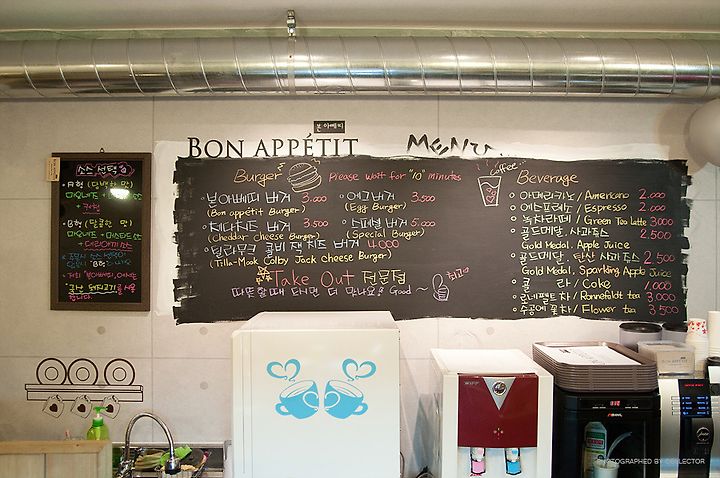 본 아뻬띠
BON APPÉTIT
MENU
소스 선택
A형 (담백한 맛)
B형 (달콤한 맛)
Burger
Please wait for "10" minutes
본아뻬띠 버거 3.000
(Bon appétit Burger)
에그버거 3.500
(Egg Burger)
체다치즈 버거 3.500
(Cheddar cheese Burger)
스페셜 버거 5.000
(Special Burger)
틸라무크 콜비 잭 치즈 버거 4.000
(Tilla-Mook Colby Jack cheese Burger)
Take Out 전문점
따뜻할때 드시면 더 맛나요? Good ~
최고
Coffee...
Beverage
아메리카노 / Americano 2.000
에스프레소 / Espresso 2.000
녹차라떼 / Green Tea latte 3.000
골드메달. 사과쥬스 2.500
Gold Medal. Apple Juice
골드메달. 탄산 사과쥬스 2.500
Gold Medal. Sparkling Apple Juice
콜 라 / Coke 1.000
로네펠트차 / Ronnefeldt tea 3.000
수공예 꽃차 / Flower tea 3.500
PHOTOGRAPHED BY COLLECTOR